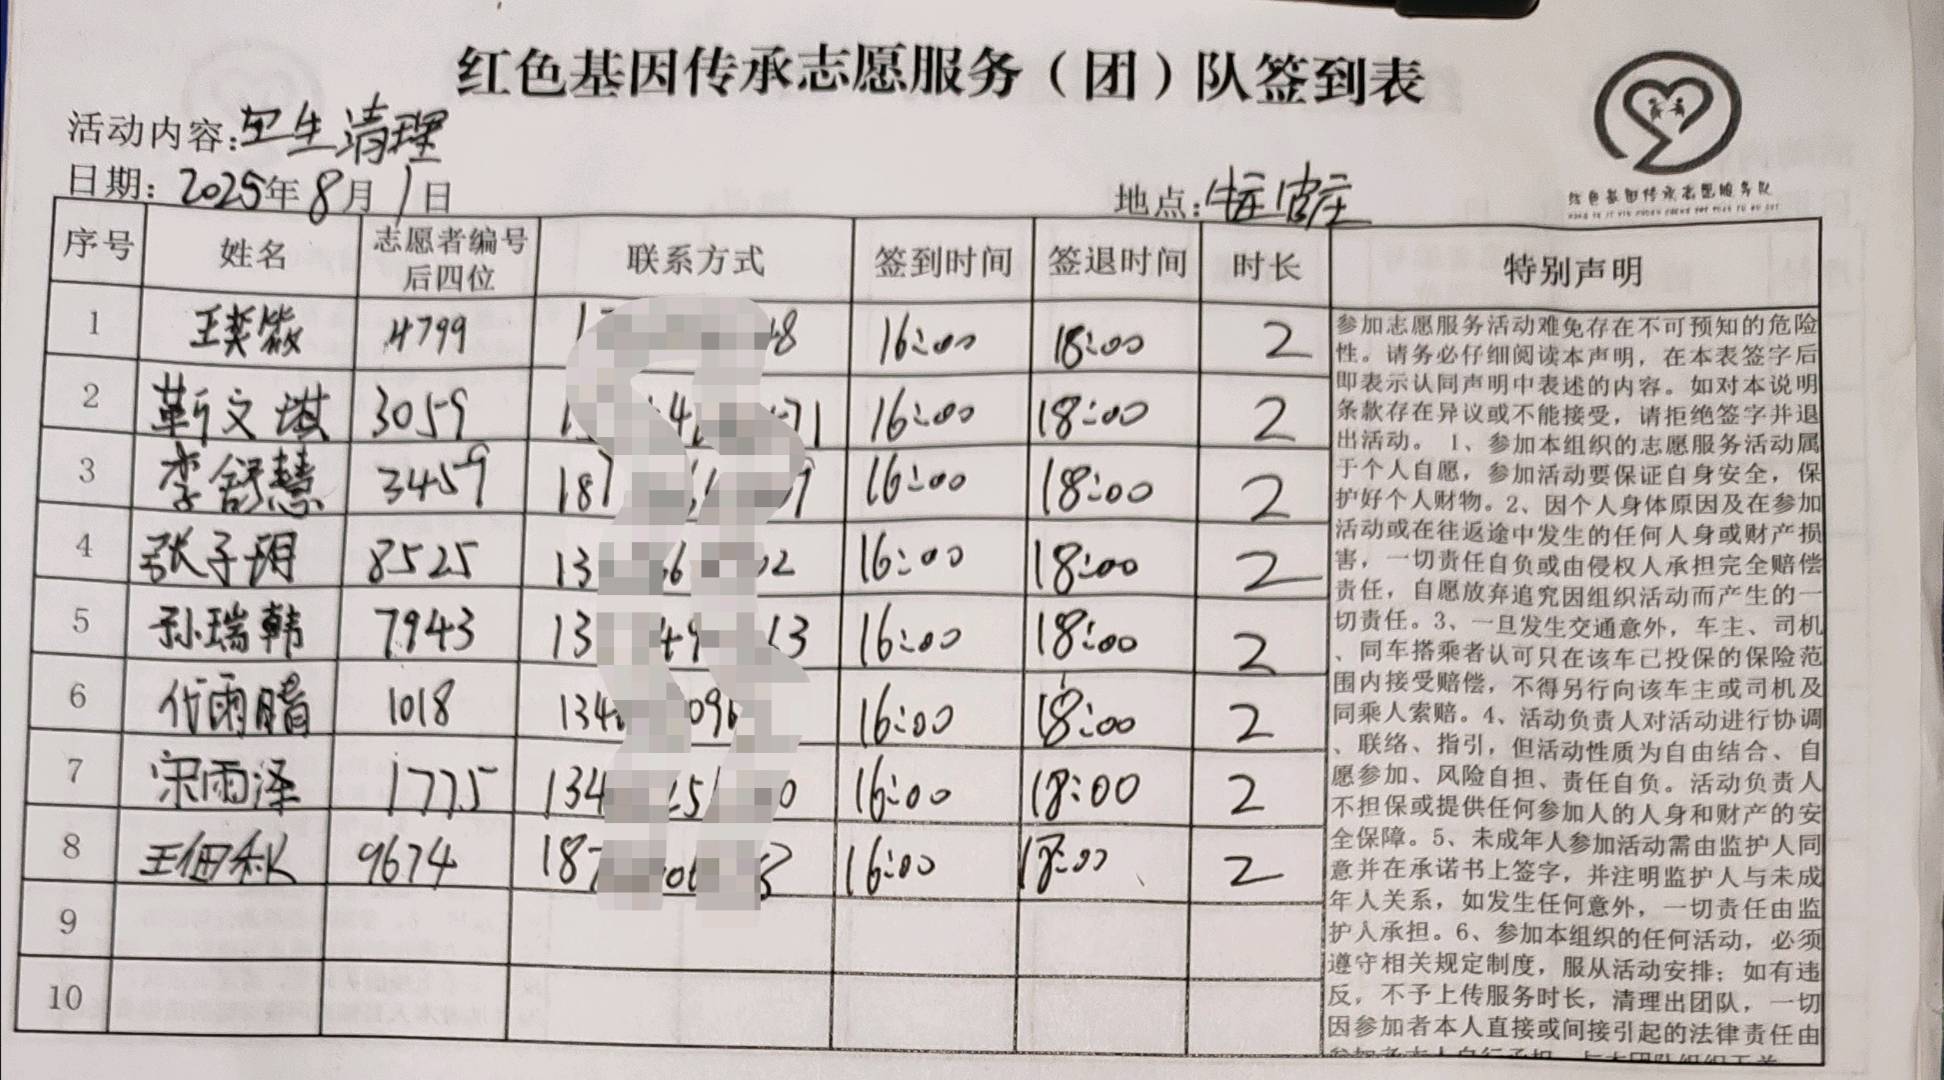 红色基因传承志愿服务（团）队签到表
活动内容：卫生清理
日期：2025年8月1日
地点：
红色基因传承志愿服务队
序号 姓名 志愿者编号后四位 联系方式 签到时间 签退时间 时长 特别声明
1 4799 16:00 18:00 2
2 靳文琪 3059 16:00 18:00 2
3 李舒慧 3459 187 16:00 18:00 2
4 张子玥 8525 13 16:00 18:00 2
5 孙瑞韩 7943 13 13 16:00 18:00 2
6 代雨晴 1018 134 16:00 18:00 2
7 宋雨泽 1775 134 16:00 18:00 2
8 王佃秋 9674 187 16:00 18:00 2
9
10
参加志愿服务活动难免存在不可预知的危险
性。请务必仔细阅读本声明，在本表签字后
即表示认同声明中表述的内容。如对本说明
条款存在异议或不能接受，请拒绝签字并退
出活动。1、参加本组织的志愿服务活动属
于个人自愿，参加活动要保证自身安全，保
护好个人财物。2、因个人身体原因及在参加
活动或在往返途中发生的任何人身或财产损
害，一切责任自负或由侵权人承担完全赔偿
责任，自愿放弃追究因组织活动而产生的一
切责任。3、一旦发生交通意外，车主、司机
、同车搭乘者认可只在该车已投保的保险范
围内接受赔偿，不得另行向该车主或司机及
同乘人索赔。4、活动负责人对活动进行协调
、联络、指引，但活动性质为自由结合、自
愿参加、风险自担、责任自负。活动负责人
不担保或提供任何参加人的人身和财产的安
全保障。5、未成年人参加活动需由监护人同
意并在承诺书上签字，并注明监护人与未成
年人关系，如发生任何意外，一切责任由监
护人承担。6、参加本组织的任何活动，必须
遵守相关规定制度，服从活动安排；如有违
反，不予上传服务时长，清理出团队，一切
因参加者本人直接或间接引起的法律责任由